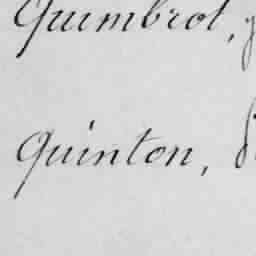 Quimbrot,
Quinton,